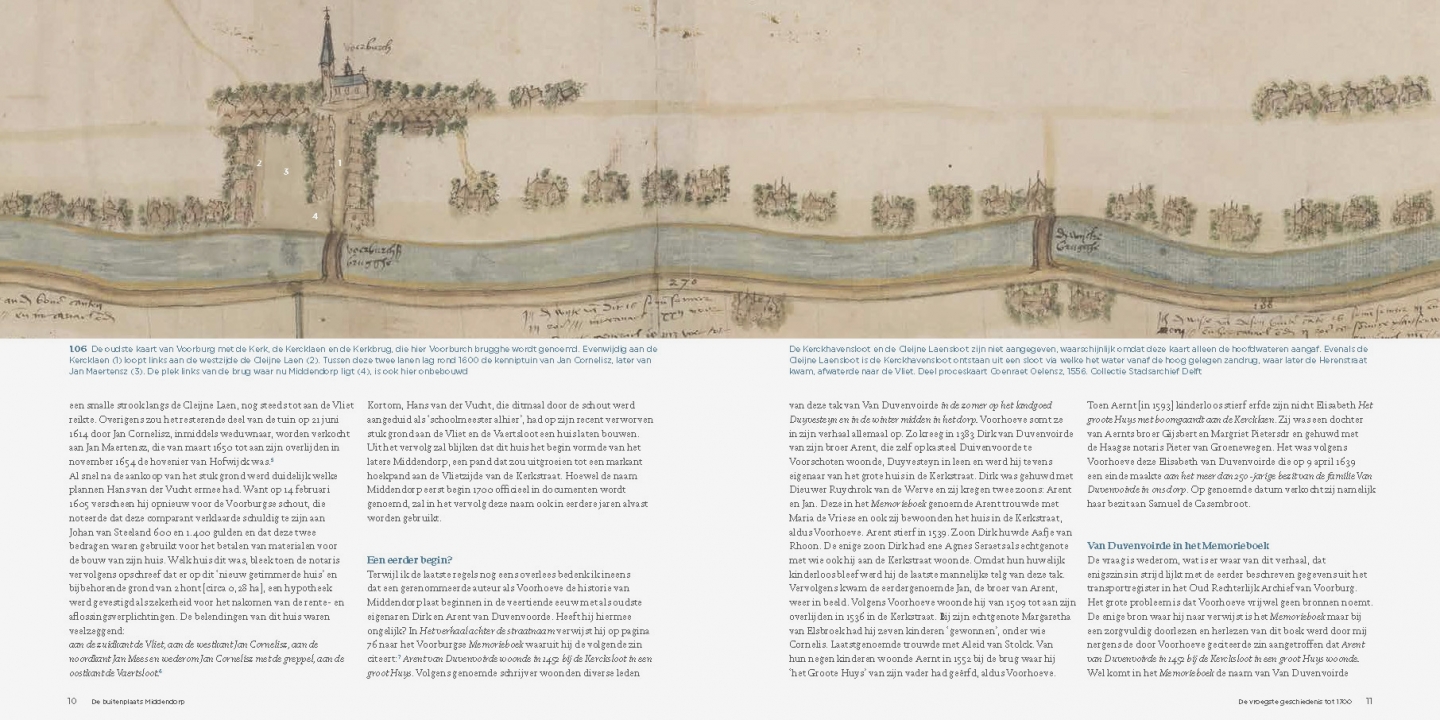 voerburch
2
1
3
4
voerburch
brugghe
270
188
1.06 De oudste kaart van Voorburg met de Kerk, de Kercklaen en de Kerkbrug, die hier Voorburch brugghe wordt genoemd. Evenwijdig aan de
Kercklaen (1) loopt links aan de westzijde de Cleijne Laen (2). Tussen deze twee lanen lag rond 1600 de kenniptuin van Jan Cornelisz, later van
Jan Maertensz (3). De plek links van de brug waar nu Middendorp ligt (4), is ook hier onbebouwd
De Kerckhavensloot en de Cleijne Laensloot zijn niet aangegeven, waarschijnlijk omdat deze kaart alleen de hoofdwateren aangaf. Evenals de
Cleijne Laensloot is de Kerckhavensloot ontstaan uit een sloot via welke het water vanaf de hoog gelegen zandrug, waar later de Herenstraat
kwam, afwaterde naar de Vliet. Deel proceskaart Coenraet Oelensz, 1556. Collectie Stadsarchief Delft
een smalle strook langs de Cleijne Laen, nog steeds tot aan de Vliet
reikte. Overigens zou het resterende deel van de tuin op 21 juni
1614 door Jan Cornelisz, inmiddels weduwnaar, worden verkocht
aan Jan Maertensz, die van maart 1650 tot aan zijn overlijden in
november 1654 de hovenier van Hofwijck was.⁵
Al snel na de aankoop van het stuk grond werd duidelijk welke
plannen Hans van der Vucht ermee had. Want op 14 februari
1605 verscheen hij opnieuw voor de Voorburgse schout, die
noteerde dat deze comparant verklaarde schuldig te zijn aan
Johan van Steeland 600 en 1.400 gulden en dat deze twee
bedragen waren gebruikt voor het betalen van materialen voor
de bouw van zijn huis. Welk huis dit was, bleek toen de notaris
vervolgens opschreef dat er op dit 'nieuw getimmerde huis' en
bijbehorende grond van 2 hont [circa 0,28 ha], een hypotheek
werd gevestigd als zekerheid voor het nakomen van de rente- en
aflossingsverplichtingen. De belendingen van dit huis waren
veelzeggend:
aan de zuidkant de Vliet, aan de westkant Jan Cornelisz, aan de
noordkant Jan Mees en wederom Jan Cornelisz met de greppel, aan de
oostkant de Vaertsloot.⁶
Kortom, Hans van der Vucht, die ditmaal door de schout werd
aangeduid als 'schoolmeester alhier', had op zijn recent verworven
stuk grond aan de Vliet en de Vaertsloot een huis laten bouwen.
Uit het vervolg zal blijken dat dit huis het begin vormde van het
latere Middendorp, een pand dat zou uitgroeien tot een markant
hoekpand aan de Vlietzijde van de Kerkstraat. Hoewel de naam
Middendorp eerst begin 1700 officieel in documenten wordt
genoemd, zal in het vervolg deze naam ook in eerdere jaren alvast
worden gebruikt.
Een eerder begin?
Terwijl ik de laatste regels nog eens overlees bedenk ik ineens
dat een gerenommeerde auteur als Voorhoeve de historie van
Middendorp laat beginnen in de veertiende eeuw met als oudste
eigenaren Dirk en Arent van Duvenvoorde. Heeft hij hiermee
ongelijk? In Het verhaal achter de straatnaam verwijst hij op pagina
76 naar het Voorburgse Memorieboek waaruit hij de volgende zin
citeert:⁷ Arent van Duvenvoirde woonde in 1452 bij de Kercksloot in een
groot Huys. Volgens genoemde schrijver woonden diverse leden
van deze tak van Van Duvenvoirde in de zomer op het landgoed
Duyvesteyn en in de winter midden in het dorp. Voorhoeve somt ze
in zijn verhaal allemaal op. Zo kreeg in 1383 Dirk van Duvenvoirde
van zijn broer Arent, die zelf op kasteel Duivenvoorde te
Voorschoten woonde, Duyvesteyn in leen en werd hij tevens
eigenaar van het grote huis in de Kerkstraat. Dirk was gehuwd met
Dieuwer Ruychrok van de Werve en zij kregen twee zoons: Arent
en Jan. Deze in het Memorieboek genoemde Arent trouwde met
Maria de Vriese en ook zij bewoonden het huis in de Kerkstraat,
aldus Voorhoeve. Arent stierf in 1539. Zoon Dirk huwde Aafje van
Rhoon. De enige zoon Dirk had ene Agnes Seraets als echtgenote
met wie ook hij aan de Kerkstraat woonde. Omdat hun huwelijk
kinderloos bleef werd hij de laatste mannelijke telg van deze tak.
Vervolgens kwam de eerdergenoemde Jan, de broer van Arent,
weer in beeld. Volgens Voorhoeve woonde hij van 1509 tot aan zijn
overlijden in 1536 in de Kerkstraat. Bij zijn echtgenote Margaretha
van Elsbroek had hij zeven kinderen 'gewonnen', onder wie
Cornelis. Laatstgenoemde trouwde met Aleid van Stolck. Van
hun negen kinderen woonde Aernt in 1552 bij de brug waar hij
'het Groote Huys' van zijn vader had geërfd, aldus Voorhoeve.
Toen Aernt [in 1593] kinderloos stierf erfde zijn nicht Elisabeth Het
groote Huys met boomgaardt aan de Kerckken. Zij was een dochter
van Aernts broer Gijsbert en Margriet Pietersdr en gehuwd met
de Haagse notaris Pieter van Groenewegen. Het was volgens
Voorhoeve deze Elisabeth van Duvenvoirde die op 9 april 1639
een einde maakte aan het meer dan 250-jarige bezit van de familie Van
Duvenvoirde in ons dorp. Op genoemde datum verkocht zij namelijk
haar bezit aan Samuel de Casembroot.
Van Duvenvoirde in het Memorieboek
De vraag is wederom, wat is er waar van dit verhaal, dat
enigszins in strijd lijkt met de eerder beschreven gegevens uit het
transportregister in het Oud Rechterlijk Archief van Voorburg.
Het grote probleem is dat Voorhoeve vrijwel geen bronnen noemt.
De enige bron waar hij naar verwijst is het Memorieboek maar bij
een zorgvuldig doorlezen en herlezen van dit boek werd door mij
nergens de door Voorhoeve geciteerde zin aangetroffen dat Arent
van Duvenvoirde in 1452 bij de Kercksloot in een groot Huys woonde.
Wel komt in het Memorieboek de naam van Van Duvenvoirde
10 De buitenplaats Middendorp
De vroegste geschiedenis tot 1700 11